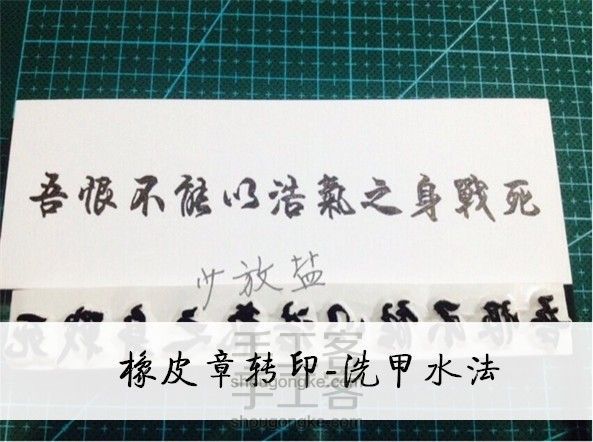 吾恨不能以浩氣之身戰死
少放盐
手工客
shougongke.com
橡皮章转印-洗甲水法
手工客
shougongke.com